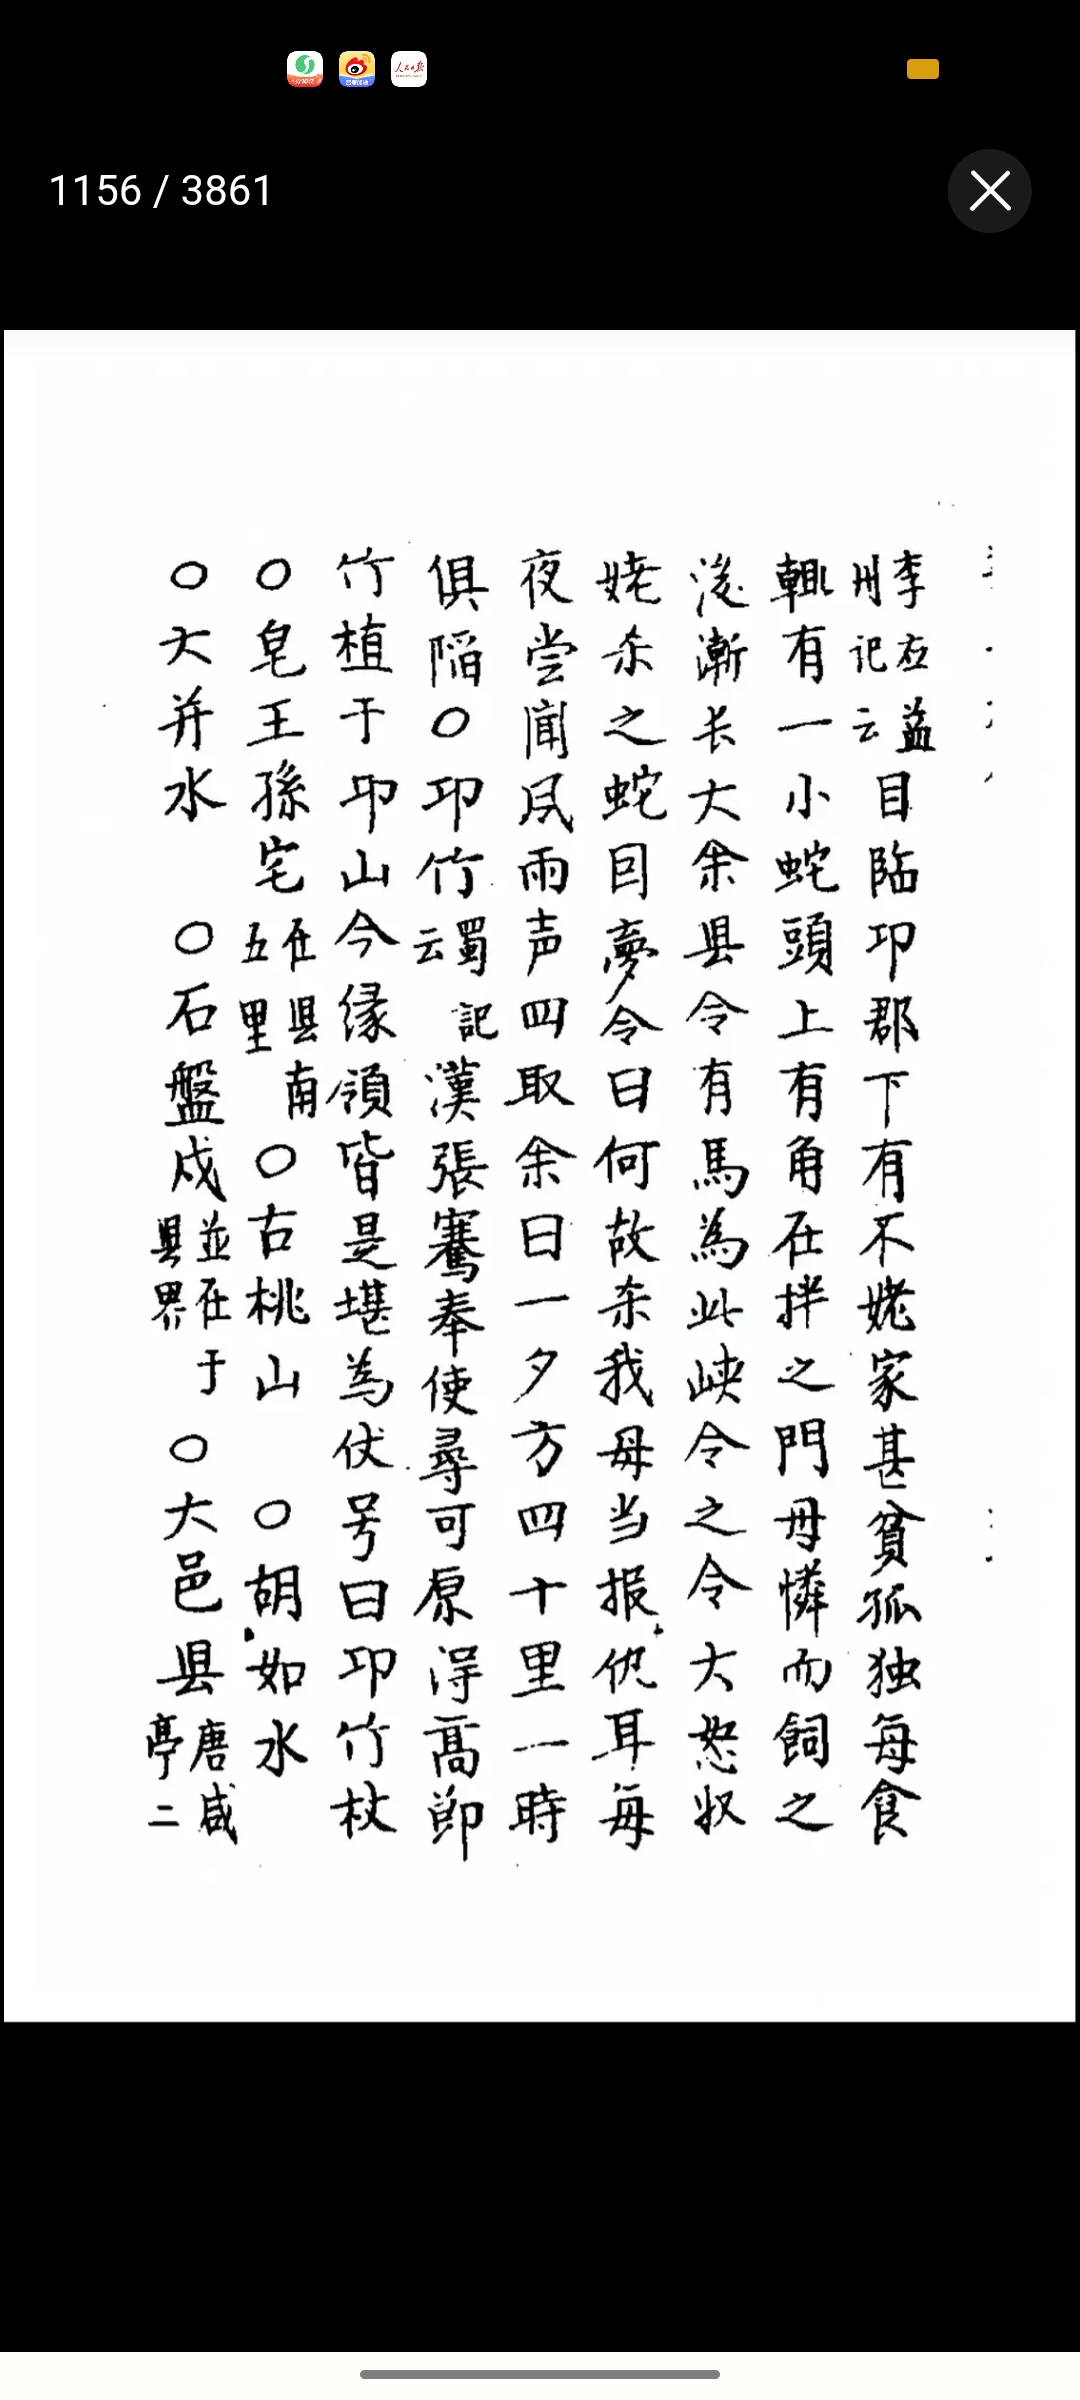 1156 / 3861
李右益州记云目臨邛郡下有不姥家甚貧孤独每食
輙有一小蛇頭上有角在拌之門毋憐而飼之
後漸长大余县令有馬為此峡令之令大怒収
姥杀之蛇因夢令曰何故杀我毋当报仇耳每
夜尝聞风雨声四取余日一夕方四十里一時
俱陷〇邛竹蜀記云漢張騫奉使尋可原淂高節
竹植于邛山今缘領皆是堪為伏号曰邛竹杖
〇皂王孫宅在县南五里〇古桃山〇胡如水
〇大井水〇石盤戍並在于县界〇大邑县唐咸亭二